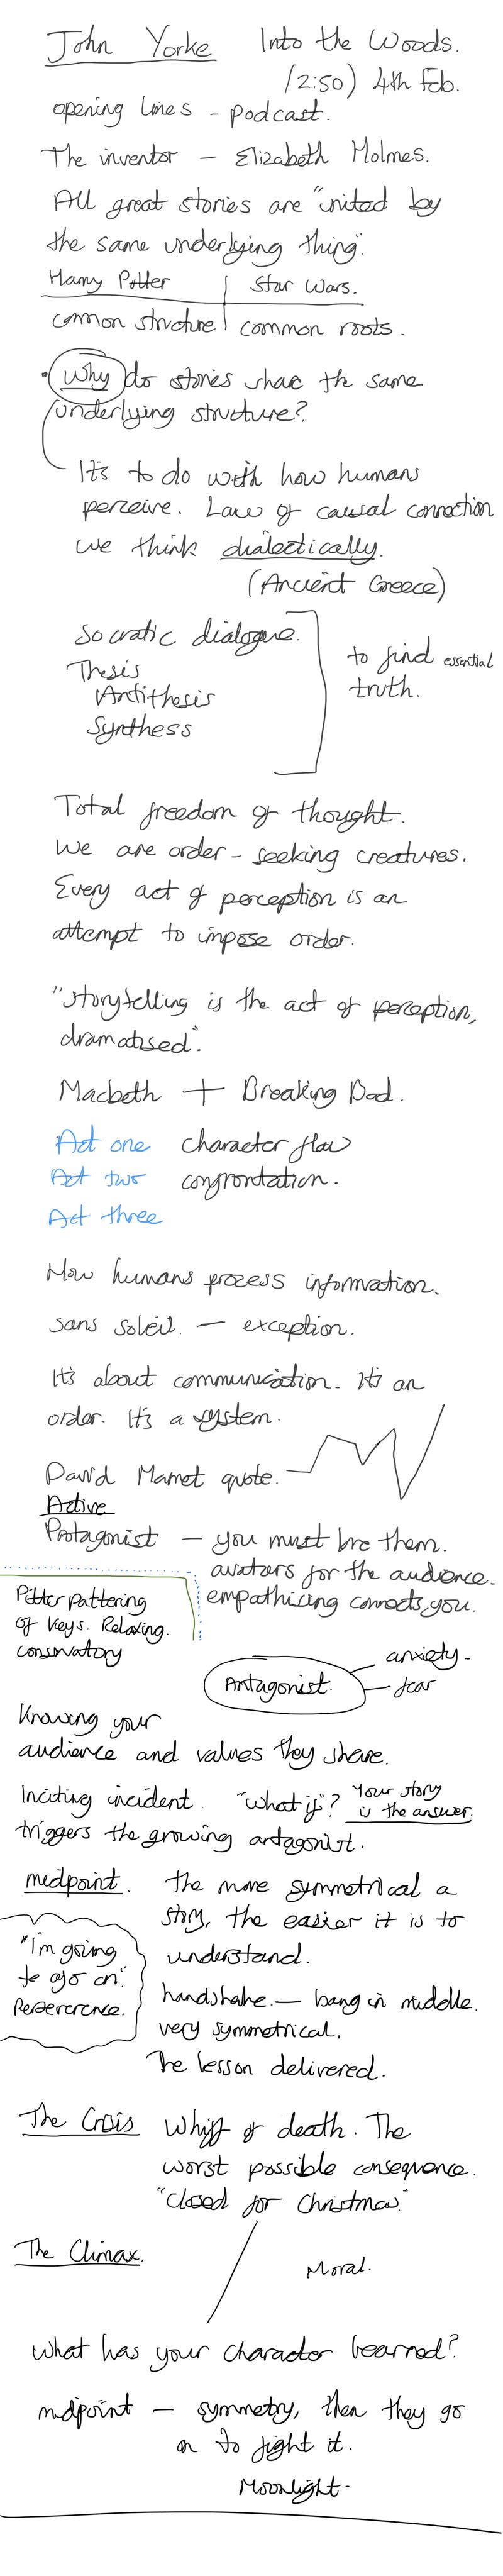 John Yorke Into the Woods.
12:50) 4th Feb.
opening lines - podcast.
The inventor - Elizabeth Holmes.
All great stories are "united by
the same underlying thing".
Harry Potter | Star Wars.
common structure | common roots.
• Why do stories share the same
underlying structure?
It's to do with how humans
perceive. Law of causal connection
we think dialectically.
(Ancient Greece)
Socratic dialogue.
Thesis
Antithesis
Synthess
to find essential
truth.
Total freedom of thought.
We are order-seeking creatures.
Every act of perception is an
attempt to impose order.
"storytelling is the act of perception,
dramatised".
Macbeth + Breaking Bad.
Act one character flaw
Act two confrontation.
Act three
How humans process information.
sans soleil. - exception.
It's about communication. It's an
order. It's a system.
David Mamet quote.
Active
Protagonist - you must love them.
avatars for the audience.
empathising connects you.
Pitter pattering
of keys. Relaxing.
conservatory
Antagonist.
anxiety -
fear
Knowing your
audience and values they share.
Inciting incident. "what if"? Your story
is the answer.
triggers the growing antagonist.
midpoint. the more symmetrical a
story, the easier it is to
understand.
"I'm going
to go on".
Perserverence.
handshake. - bang in middle.
very symmetrical.
The lesson delivered.
The Crisis Whiff of death. The
worst possible consequence.
"Closed for Christmas"
The Climax.
Moral.
What has your character learned?
midpoint - symmetry, then they go
on to fight it.
Moonlight -